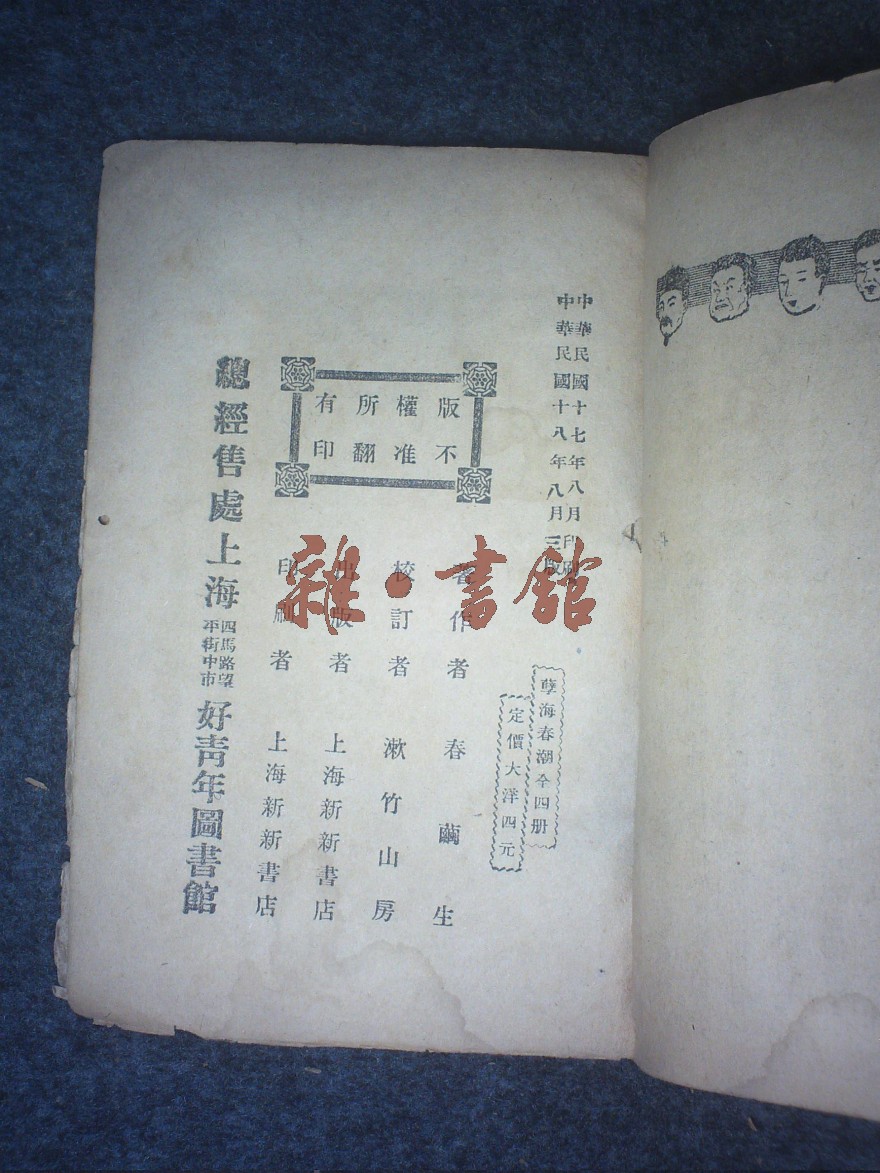 中華民國十七年八月印刷
中華民國十八年八月三版
孽海春潮全四册
定價大洋四元
版權所有
不准翻印
著作者 春繭生
校訂者 漱竹山房
出版者 上海新新書店
印刷者 上海新新書店
總經售處上海四馬路望平街中市好靑年圖書館
雜·書館